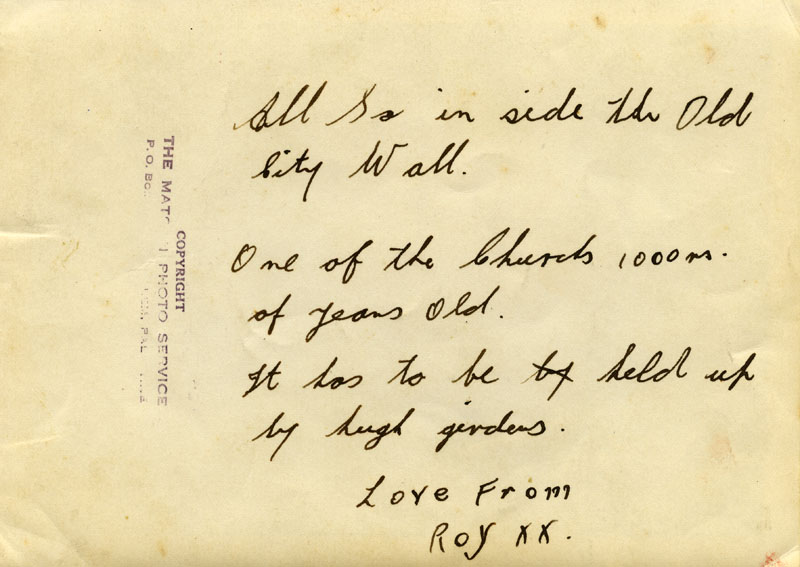 All Is in side the Old
City Wall.
One of the Church 1000rs.
of years Old.
It has to be by held up
by hugh girders.
Love From
Roy XX.
COPYRIGHT
THE MATS PHOTO SERVICE
P.O. Bo